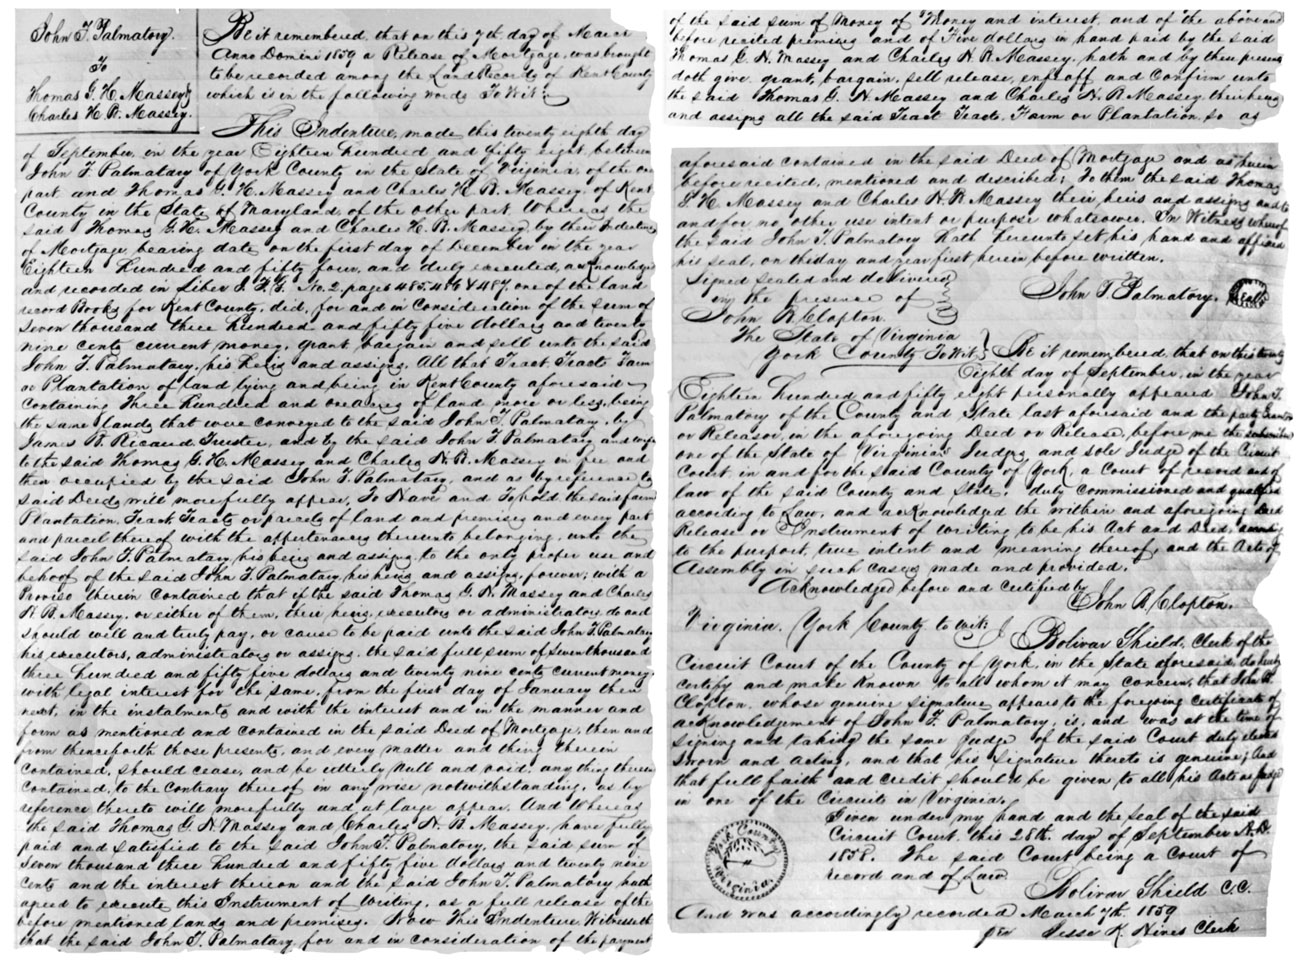 John T. Palmatory.
To
Thomas G. H. Massey &
Charles H. R. Massey.
Be it remembered, that on this 7th day of March
Anno Domini 1859 a Release of Mortgage, was brought
to be recorded among the Land Records of Kent County
which is in the following words To Wit:
This Indenture, made this twenty eighth day
of September, in the year Eighteen hundred and fifty eight, between
John T. Palmatary of York County in the State of Virginia, of the one
part and Thomas G. H. Massey and Charles H. R. Massey, of Kent
County in the State of Maryland of the other part. Whereas the
said Thomas G. H. Massey and Charles H. R. Massey, by their Indenture
of Mortgage bearing date on the first day of December in the year
Eighteen hundred and fifty four, and duly executed, acknowledged
and recorded in Liber J. F. G. No. 2, pages 485. 486 & 487, one of the land
record Books for Kent County, did, for and in consideration of the sum of
Seven thousand three hundred and fifty five dollars and twenty
nine cents current money, grant bargain and sell unto the said
John T. Palmentary, his heirs and assigns, All that Tract, Tracts Farm
or Plantation of land lying and being in Kent County aforesaid
containing Three hundred and one acres of land more or less, being
the same lands that were conveyed to the said John T. Palmatary, by
James B. Ricaud Trustee, and by the said John T. Palmatary and wife
to the said Thomas G. H. Massey and Charles H. R. Massey in fee, and
then occupied by the said John T. Palmatary, and as by reference to
said Deeds will more fully appear, To Have and To hold the said farm
Plantation, Tract Tracts or parcels of land and premises and every part
and parcel thereof with the appurtenances thereunto belonging, unto the
said John T. Palmatary, his heirs and assigns, to the only proper use and
behoof of the said John T. Palmatary, his heirs and assigns, forever; with a
Proviso therein contained that if the said Thomas G. H. Massey and Charles
H. R. Massey, or either of them, their heirs, executors or administrators, do and
should will and truly pay, or cause to be paid unto the said John T. Palmatary
his executors, administrators or assigns, the said full sum of Seven thousand
three hundred and fifty five dollars and twenty nine cents current money
with legal interest for the same, from the first day of January then
next, in the instalments and with the interest and in the manner and
form as mentioned and contained in the said Deed of Mortgage, then and
from thenceforth those presents, and every matter and thing therein
contained, should cease, and be utterly null and void, any thing therein
contained, to the contrary thereof in any wise notwithstanding, as by
reference thereto will more fully and at large appear. And Whereas
the said Thomas G. H. Massey and Charles H. R. Massey, have fully
paid and satisfied to the said John T. Palmatory, the said sum of
Seven thousand three hundred and fifty five dollars and twenty nine
cents and the interest thereon and the said John T. Palmatary hath
agreed to execute this Instrument of Writing, as a full release of the
before mentioned lands and premises. Now This Indenture Witnesseth
that the said John T. Palmatary, for and in consideration of the payment
of the said sum of Money of Money and interest, and of the above and
before recited premises and of Five dollars in hand paid by the said
Thomas G. H. Massey and Charles H. R. Massey, hath and by these presents
doth give, grant, bargain, sell release, enfeoff and Confirm unto
the said Thomas G. H. Massey and Charles H. R. Massey, their heirs
and assigns all the said Tract Tracts, Farm or Plantation, so as
aforesaid contained in the said Deed of Mortgage and as herein
before recited, mentioned and described; To them the said Thomas
G. H. Massey and Charles H. R. Massey their heirs and assigns and to
and for no other use intent or purpose whatsoever. In Witness whereof
the said John T. Palmatory hath hereunto set his hand and affixed
his seal, on this day and year first herein before written.
Signed sealed and delivered
in the presence of
John B. Clopton.
John T. Palmatory. Seal
The State of Virginia
York County To Wit
Be it remembered, that on this twenty
Eighth day of September, in the year
Eighteen hundred and fifty eight personally appeared John T.
Palmatory of the County and State last aforesaid and the party Grantor
or Releasor, in the aforegoing Deed or Release, before me the subscriber
one of the State of Virginia's Judges and sole Judge of the Circuit
Court in and for the said County of York, a Court of record and of
law of the said County and State, duly commissioned and qualified
according to Law, and acknowledged the within and aforegoing Deed
Release or Instrument of Writing to be his Act and Deed, according
to the purport, true intent and meaning thereof, and the Acts of
Assembly in such cases made and provided.
Acknowledged before and certified by
John B. Clopton.
Virginia. York County to wit:
Bolivar Shield, Clerk of the
Circuit Court of the County of York, in the State aforesaid, do hereby
certify and make known to all whom it may concern, that John B.
Clopton, whose genuine signature appears to the foregoing Certificate of
acknowledgement of John T. Palmatory, is, and was at the time of
signing and taking the same Judge of the said Court duly elected
sworn and acting, and that his signature thereto is genuine; And
that full faith and credit should be given to all his Acts as Judge
in one of the Circuits in Virginia.
Given under my hand and the seal of the said
Circuit Court, this 28th day of September A. D.
1858. The said Court being a Court of
record and of Law
York County
Virginia.
Bolivar Shield C. C.
And was accordingly recorded March 7th 1859
per Jesse K. Hines Clerk